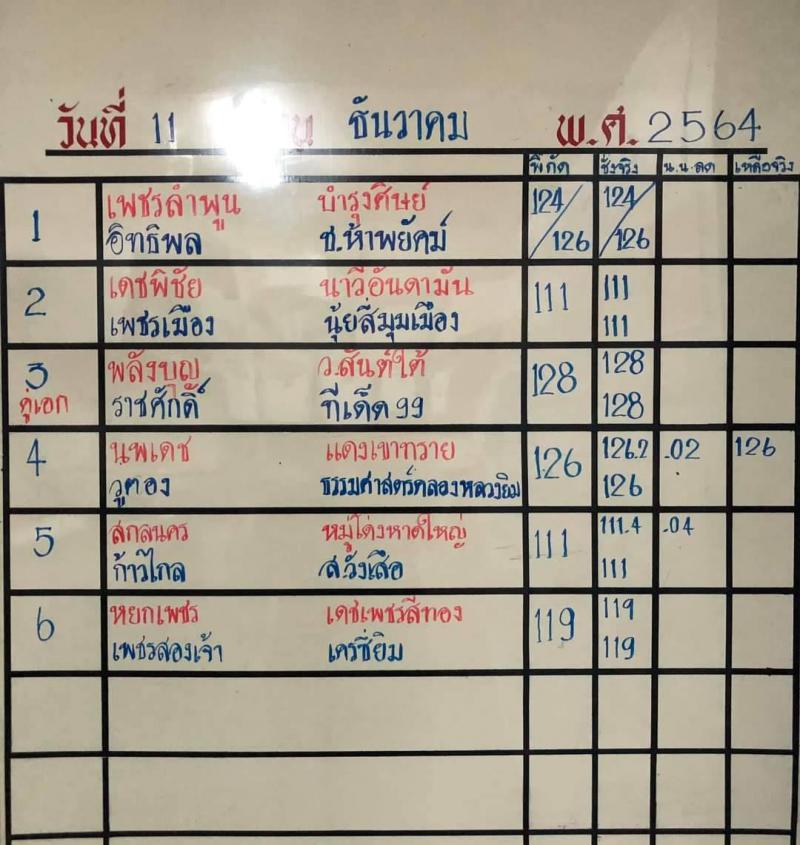 วันที่ 11 ธันวาคม พ.ศ. 2564
พิกัด ชั่งจริง น.น.ลด เหลือจริง
1 เพชรลำพูน บำรุงศิษย์ 124/126 124/126
อิทธิพล ช.ห้าพยัคฆ์
2 เดชพิชัย นาวีอันดามัน 111 111
เพชรเมือง นุ้ยสี่มุมเมือง 111
3 พลังบุญ ว.สันต์ใต้ 128 128
คู่เอก ราชศักดิ์ ทีเด็ด 99 128
4 นพเดช แดงเขาทราย 126 126.2 .02 126
วูคอง ธรรมศาสตร์คลองหลวงยิม 126
5 สกลนคร หมู่โด่งหาดใหญ่ 111 111.4 .04
ก้าวไกล ส.วังเสือ 111
6 หยกเพชร เดชเพชรสีทอง 119 119
เพชรสองเจ้า เครซี่ยิม 119